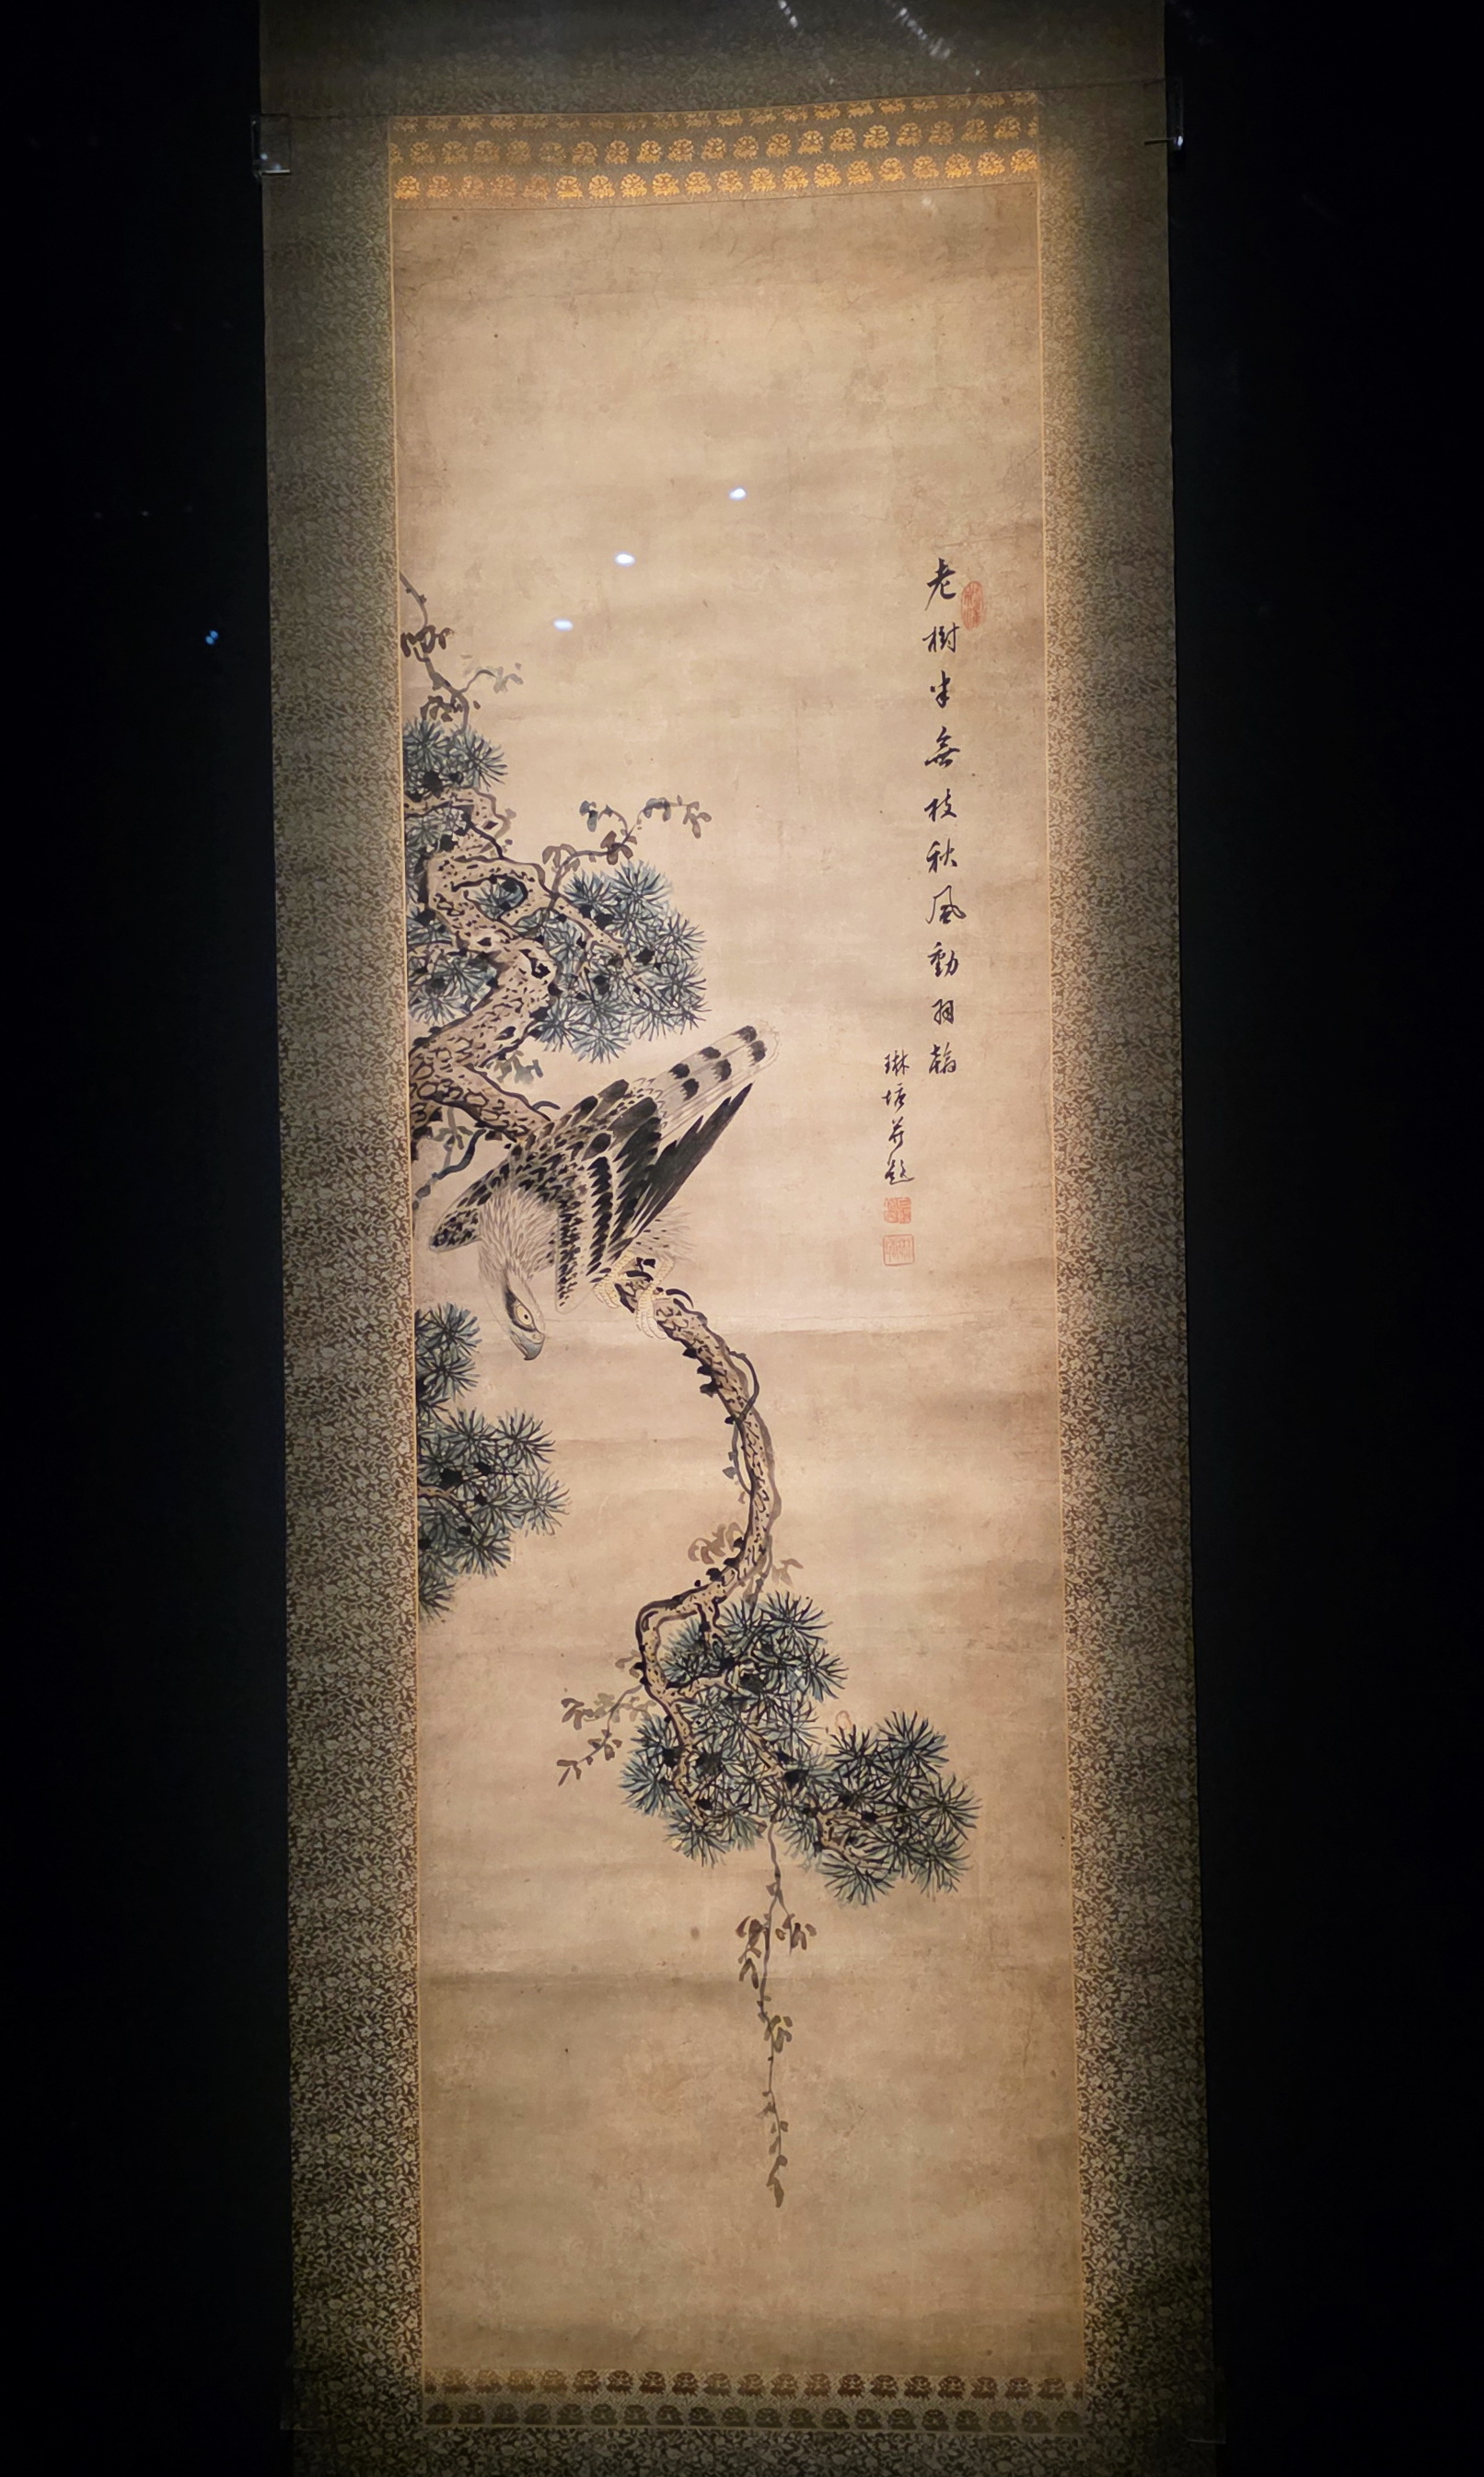 老樹半無枝秋風動羽翰
琳塘并題